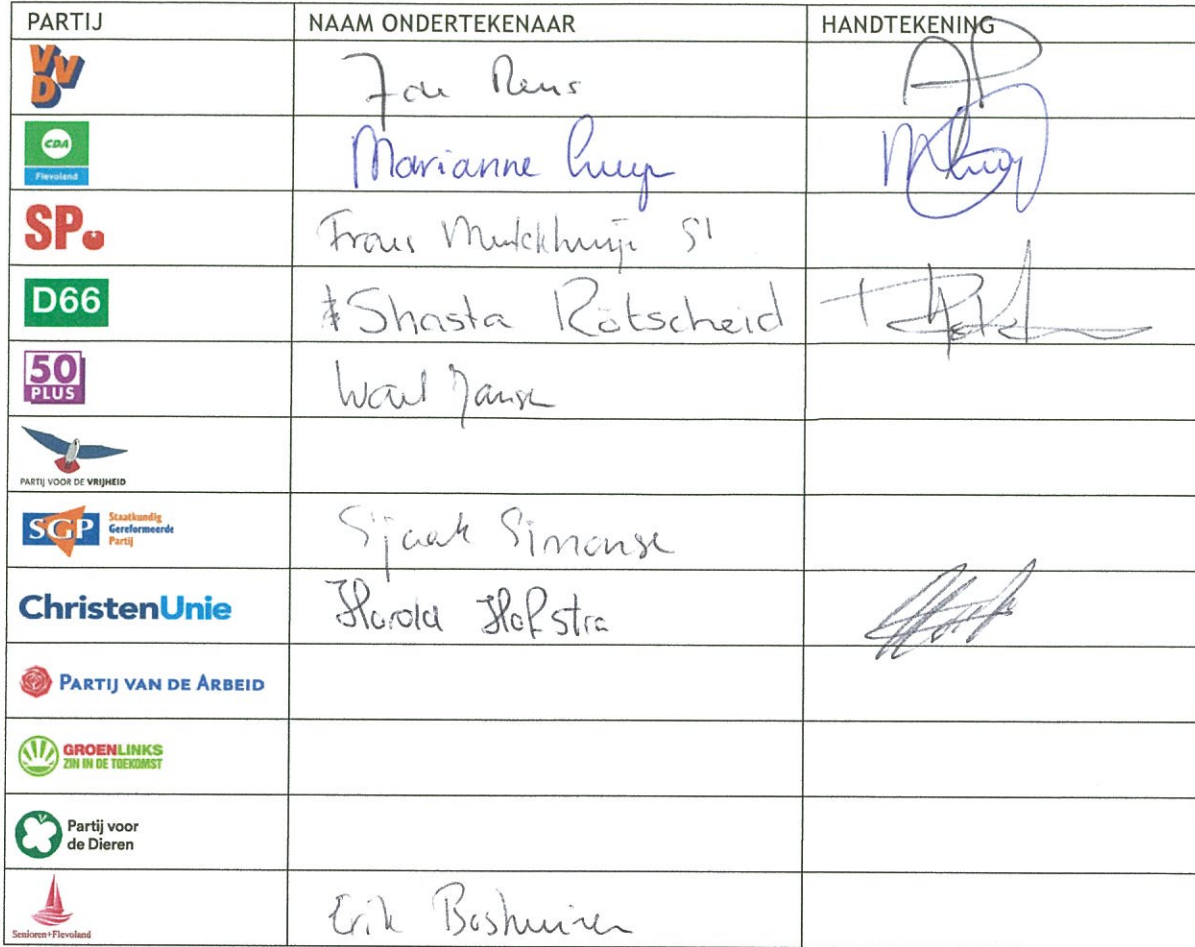 PARTIJ NAAM ONDERTEKENAAR HANDTEKENING
VVD
CDA Marianne
Flevoland
SP. Frans
D66 Shasta Rötscheid
50
PLUS
PARTIJ VOOR DE VRIJHEID
SGP Staatkundig
Gereformeerde
Partij
Sjaak Simonse
ChristenUnie Harold Hofstra
PARTIJ VAN DE ARBEID
GROENLINKS
ZIN IN DE TOEKOMST
Partij voor
de Dieren
Senioren+Flevoland Erik Boshuizen